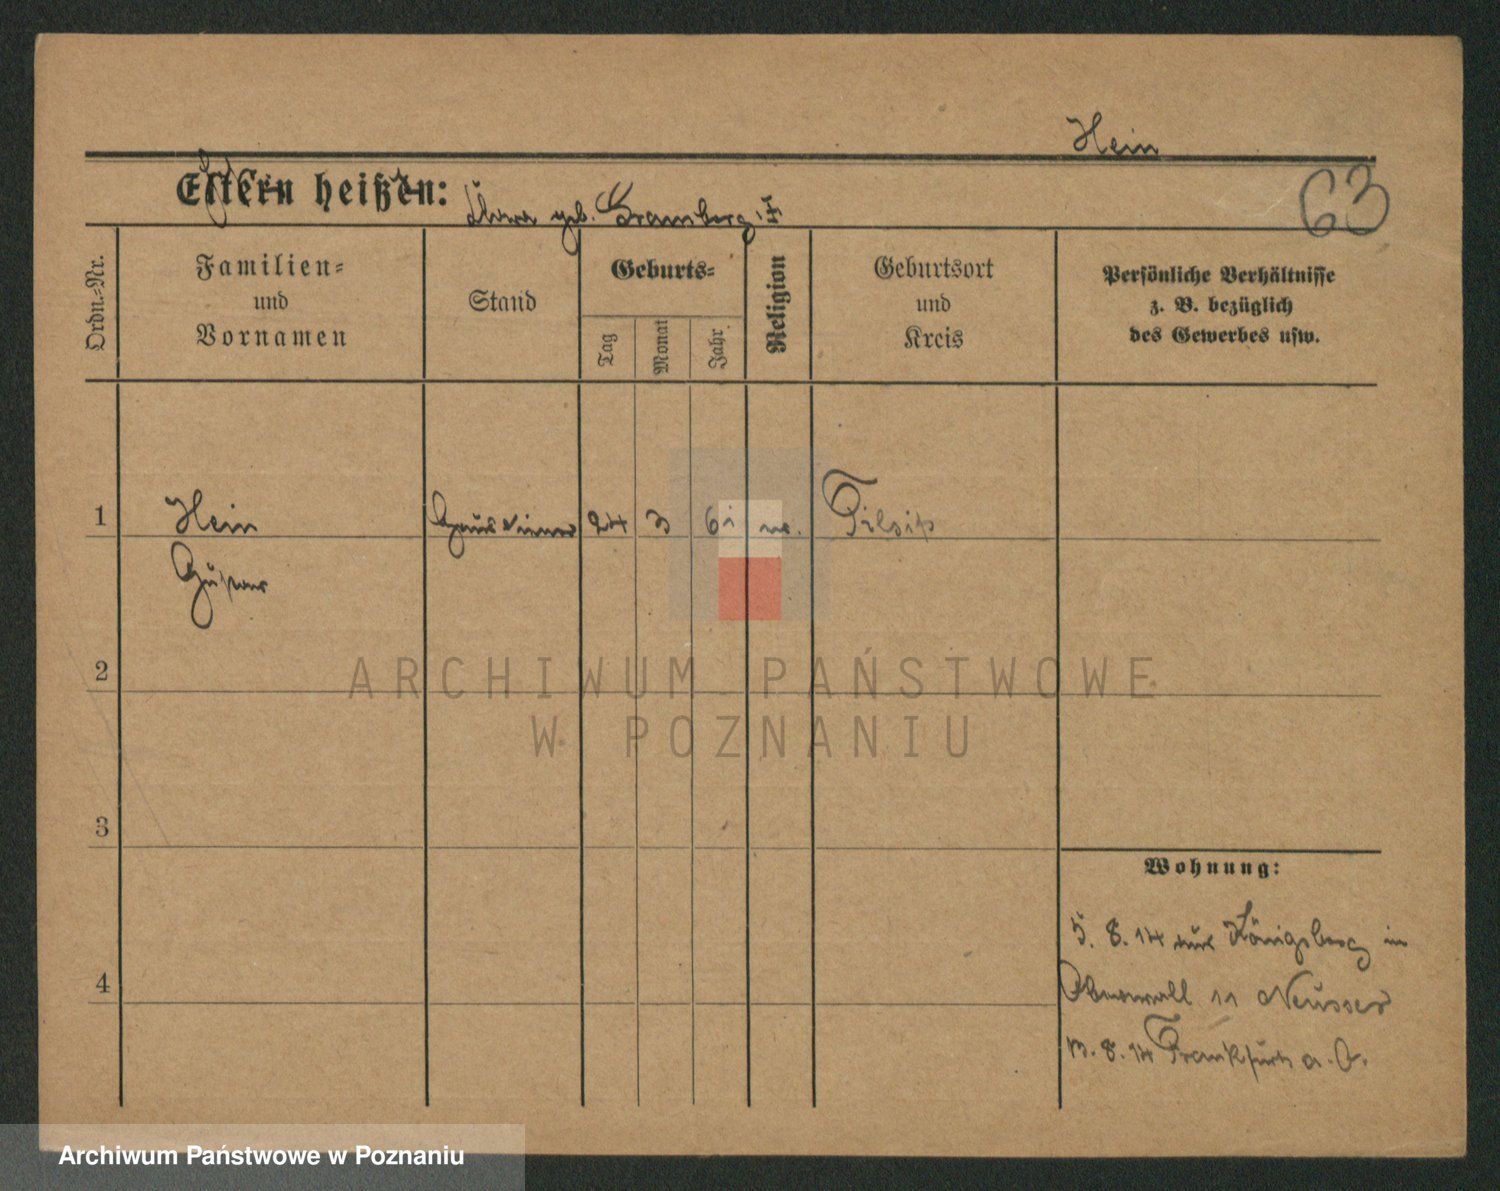 Hein
63
Eltern heißen:
geb. Bramberg
Ordn.-Nr.
Familien-
und
Vornamen
Stand
Geburts-
Tag
Monat
Jahr
Religion
Geburtsort
und
Kreis
Persönliche Verhältnisse
z. B. bezüglich
des Gewerbes usw.
1 Hein 24 3 61 Tilsit
Gustav
2
3
4
Wohnung:
5. 8. 14 aus Königsberg in
11
13. 8. 14 Frankfurt a. O.
ARCHIWUM PAŃSTWOWE
W POZNANIU
Archiwum Państwowe w Poznaniu